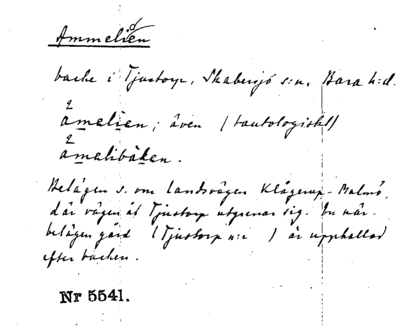 Ammelien
backe i Tjustorp, Skabersjö s:n, Bara h:d.
amelien; även (tautologiskt)
amelibaken.
Belägen s. om landsvägen Klågerup-Malmö,
där vägen åt Tjustorp utgrenar sig. En när-
belägen gård (Tjustorp n:r ) är uppkallad
efter backen.
Nr 5541.